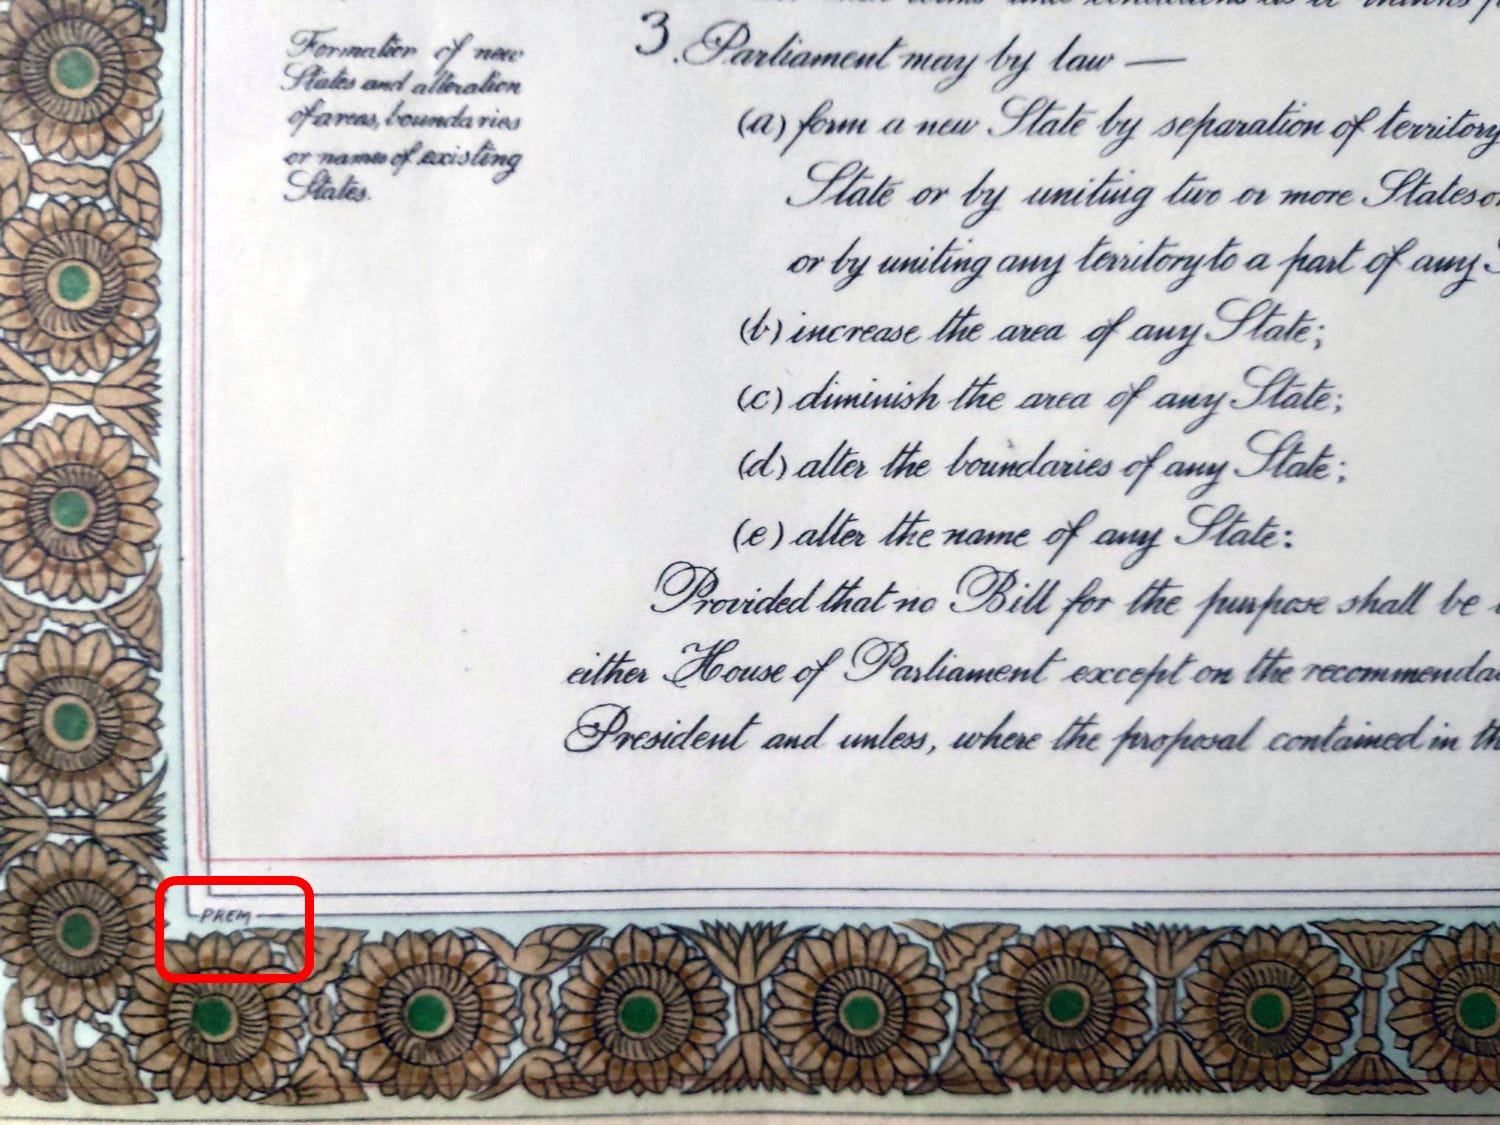 Formation of new
States and alteration
of areas, boundaries
or names of existing
States.
3. Parliament may by law —
(a) form a new State by separation of territory
State or by uniting two or more States or
or by uniting any territory to a part of any
(b) increase the area of any State;
(c) diminish the area of any State;
(d) alter the boundaries of any State;
(e) alter the name of any State:
Provided that no Bill for the purpose shall be
either House of Parliament except on the recommenda
President and unless, where the proposal contained in th
PREM